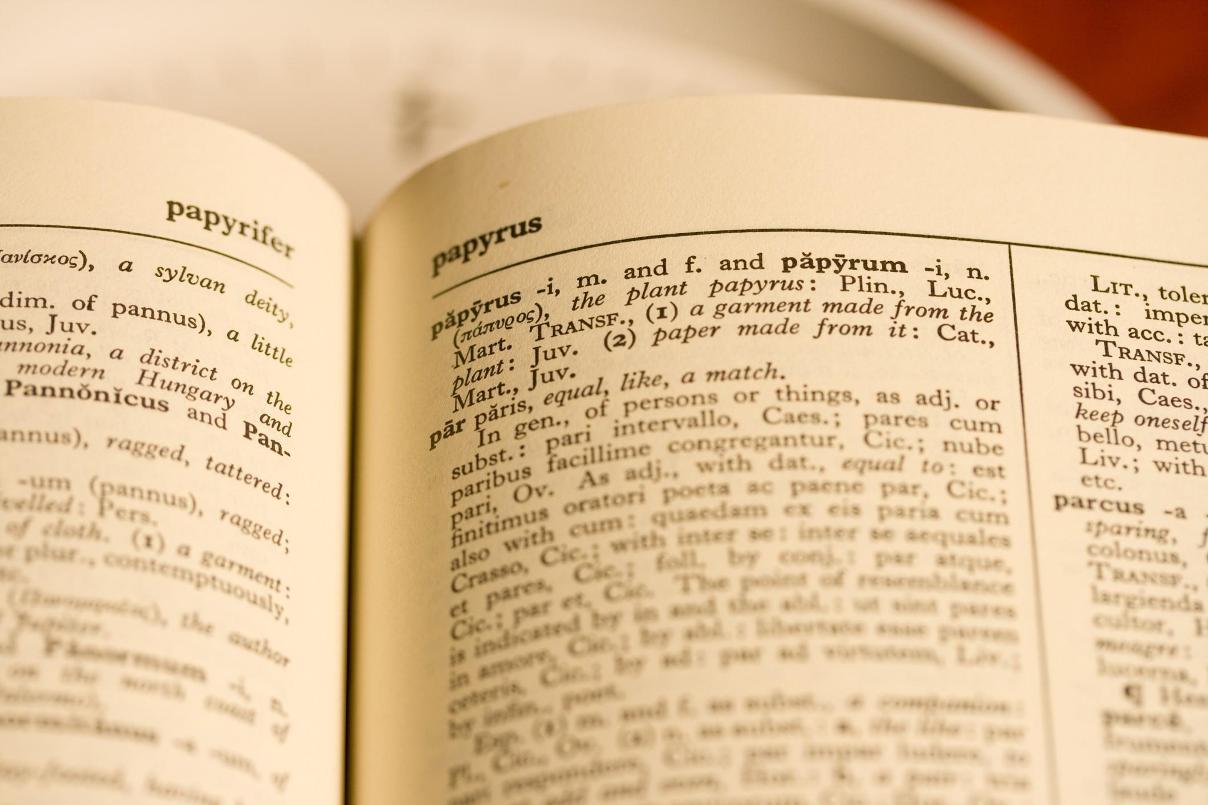 papyrifer
ανίσκος), a sylvan deity,
dim. of pannus), a little
us, Juv.
annonia, a district on the
modern Hungary and
Pannŏnĭcus and Pan-
annus), ragged, tattered:
-um (pannus), ragged;
Pers.
of cloth. (1) a garment:
plur., contemptuously,
the author
Pănormum -i, n.
on the north coast of
papyrus
păpȳrus -i, m. and f. and păpȳrum -i, n.
(πάπυρος), the plant papyrus: Plin., Luc.,
Mart. TRANSF., (1) a garment made from the
plant: Juv. (2) paper made from it: Cat.,
Mart., Juv.
pār păris, equal, like, a match.
In gen., of persons or things, as adj. or
subst.: pari intervallo, Caes.; pares cum
paribus facillime congregantur, Cic.; nube
pari, Ov. As adj., with dat., equal to: est
finitimus oratori poeta ac paene par, Cic.;
also with cum: quaedam ex eis paria cum
Crasso, Cic.; with inter se: inter se aequales
et pares, Cic.; foll. by conj.: par atque,
Cic.; par et, Cic. The point of resemblance
is indicated by in and the abl.: ut sint pares
in amore, Cic.; by abl.: libertate esse parem
ceteris, Cic.; by ad: par ad virtutem, Liv.;
by infin., poet.
Esp. (1) m. and f. as subst., a companion:
LIT., toler
dat.: impe
with acc.: ta
TRANSF.,
with dat. of
sibi, Caes.,
keep oneself
bello, metu
Liv.; with
etc.
parcus -a
sparing, f
colonus,
TRANSF.,
largienda
cultor, H
meagre:
lucerna,